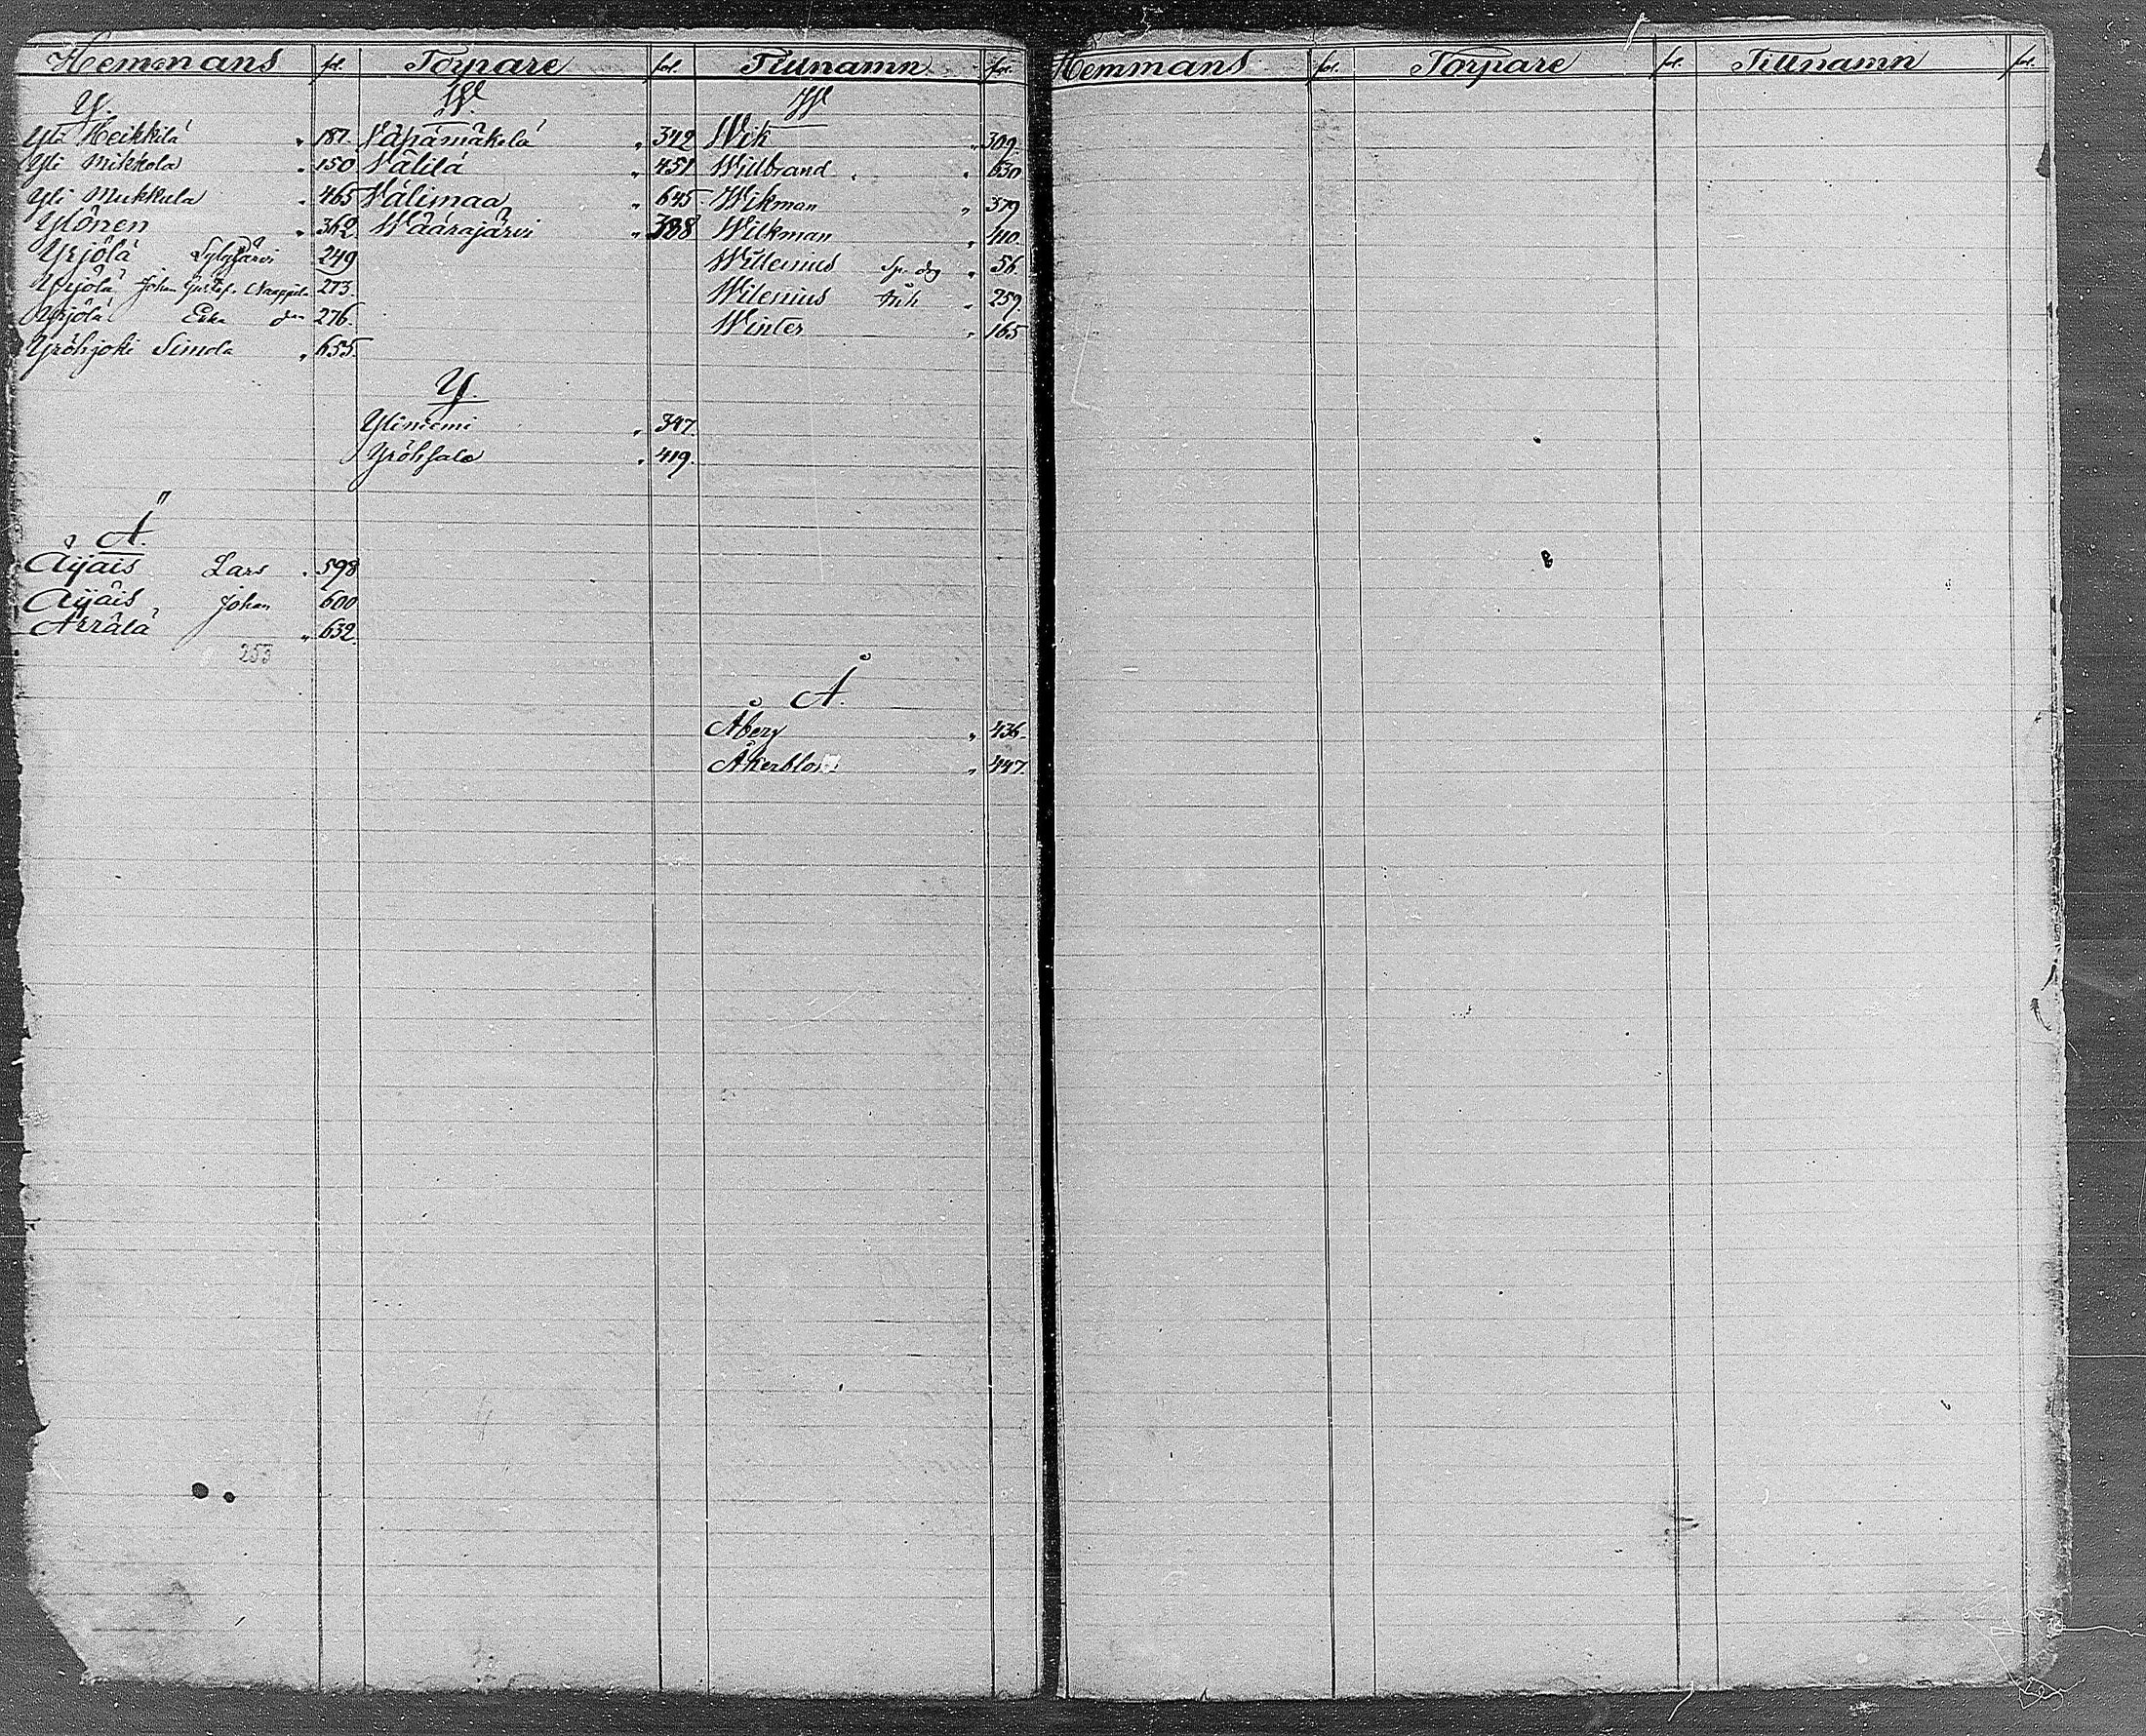 Hemmans fol. Torpare fol. Tillnamn fol.
Y.
Yli Heikkilä " 187.
Yli Mikkola " 150
Yli Mukkula " 465
Ylönen " 362
Yrjölä Sylyjärvi 249
Yrjölä Johan Gustaf. Naappila 273
Yrjölä Erka d:o 276.
Yröhjoki Simola " 655.
Ä.
Äijäis Lars " 598
Äijäis Johan 600
Ärrälä " 632
253
W.
Wäpämäkelä " 342
Wälilä " 451
Wälimaa " 645
Wäärajärvi " 388
Y.
Yliniemi " 347.
Yröhsalo " 419.
W
Wik " 309.
Willbrand " 630
Wikman " 379
Wilkman " 410.
Willenius Sp. dög " 56.
Wilenius " 259.
Winter " 165
Å.
Åberg " 436.
Åkerblom " 447.
Hemmans fol. Torpare fol. Tillnamn fol.